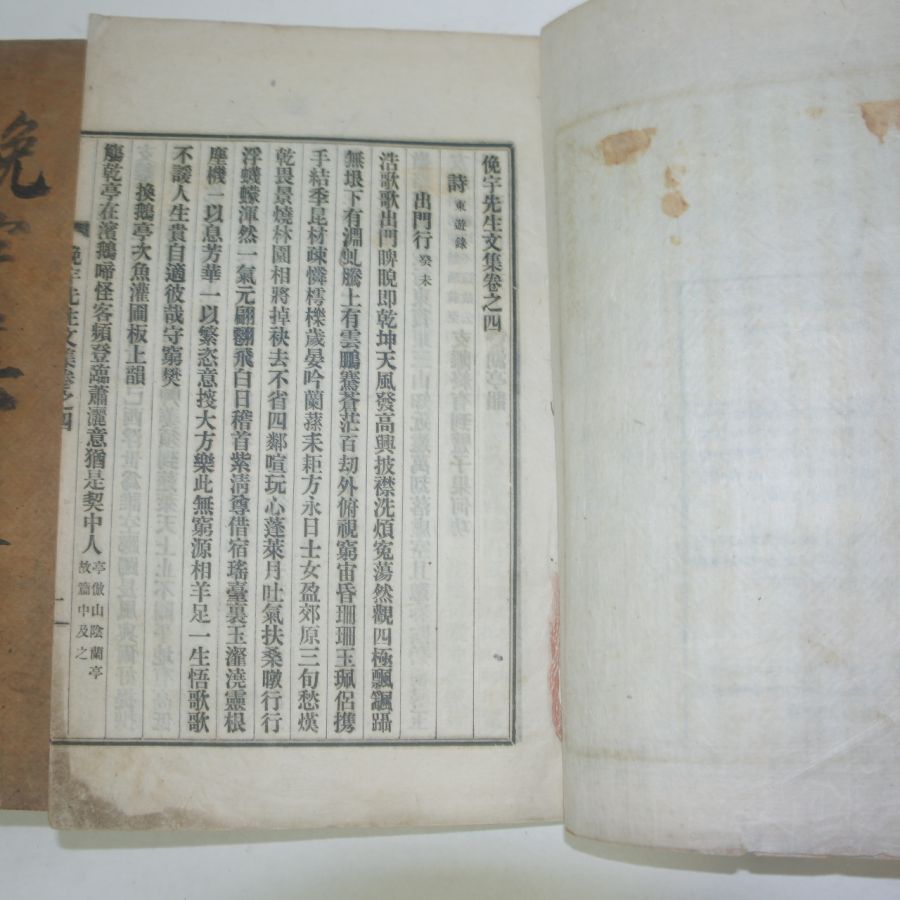 俛宇先生文集卷之四
詩 東遊錄
出門行 癸未
浩歌歌出門睥睨即乾坤天風發高興披襟洗煩寃蕩然觀四極飄飄躡
無垠下有淵虬騰上有雲鵬騫蒼茫百劫外俯視窮宙昏珊珊玉珮侶携
手結季昆材疎憐樗櫟歲晏吟蘭蓀耒耟方永日士女盈郊原三旬愁熯
乾畏景燒林園相將掉袂去不省四鄰喧玩心蓬萊月吐氣扶桑暾行行
浮蠛蠓渾然一氣元翩翻飛白日稽首紫淸尊借宿瑤臺裏玉瀣澆靈根
塵機一以息芳華一以繁恣意接大方樂此無窮源相羊足一生悟歌歌
不諼人生貴自適彼哉守窮樊
換鵝亭次魚灌圃板上韻
觴乾亭在濱鵝啼怪客頻登臨蕭灑意猶是契中人 亭倣山陰蘭亭
故篇中及之
俛宇先生文集卷之四
一